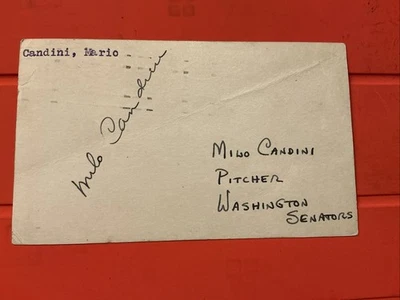 Candini, Mario
Milo Candini
MILO CANDINI
PITCHER
WASHINGTON
SENATORS